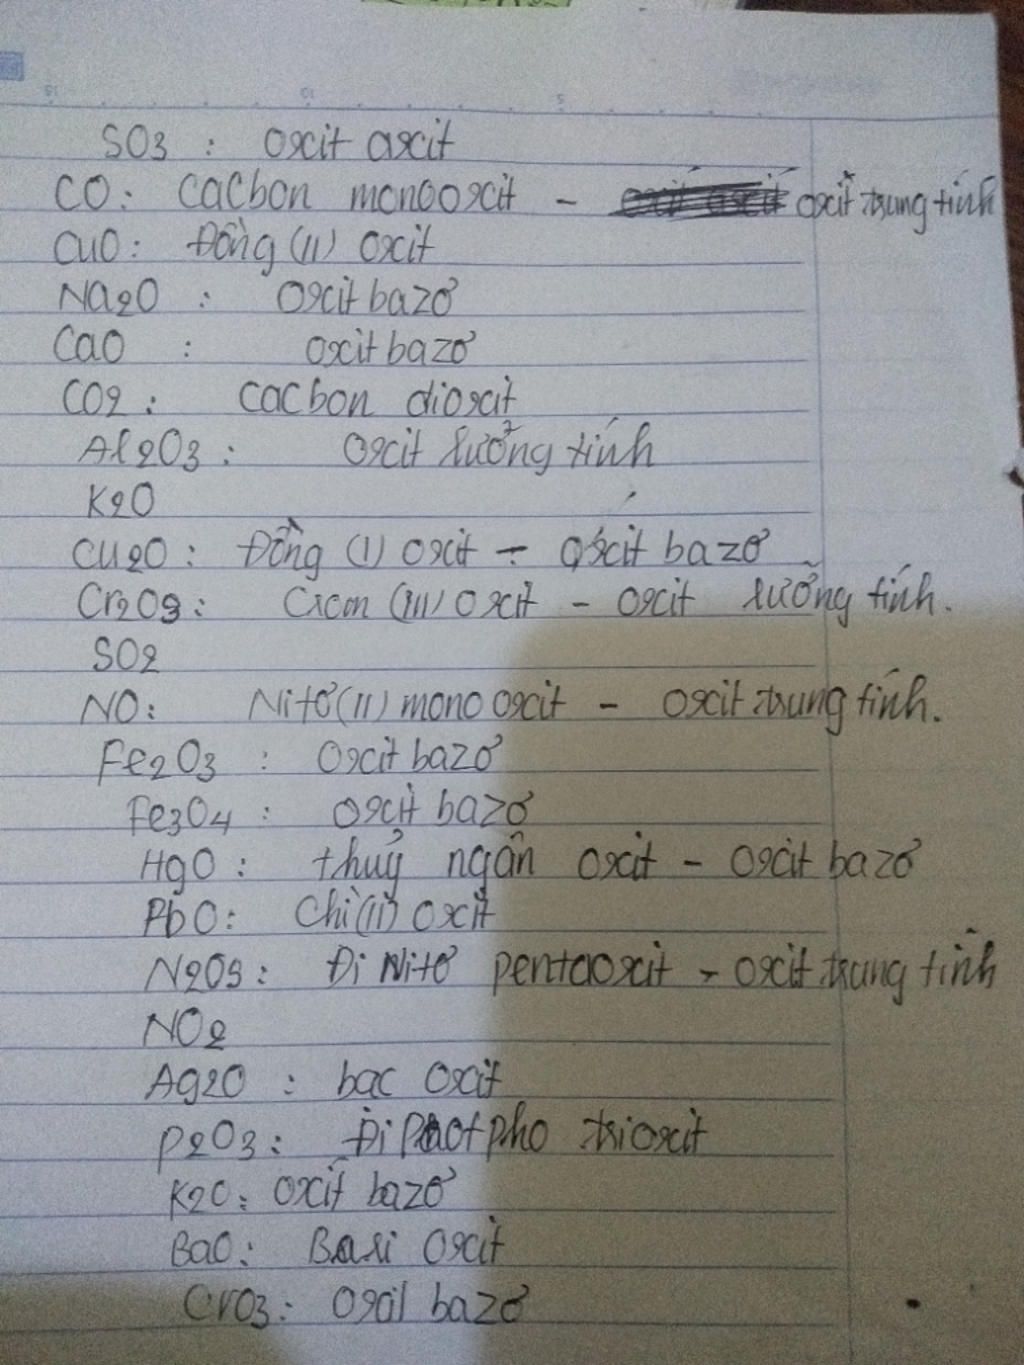 SO3 : oxit axit
CO: cacbon monooxit - oxit trung tính
CuO: Đồng (II) oxit
Na2O : oxit bazơ
CaO : oxit bazơ
CO2: cacbon dioxit
Al2O3: oxit lưỡng tính
K2O
Cu2O: Đồng (I) oxit - oxit bazơ
Cr2O3: Crom (III) oxit - oxit lưỡng tính.
SO2
NO: Nitơ (II) monooxit - oxit trung tính.
Fe2O3 : oxit bazơ
Fe3O4 : oxit bazơ
HgO: thuỷ ngân oxit - oxit bazơ
PbO: Chì (II) oxit
N2O3: Đi Nitơ pentaoxit - oxit trung tính
NO2
Ag2O : bạc oxit
P2O3: Đi photpho trioxit
K2O: oxit bazơ
BaO: Bari oxit
CrO3: oxit bazơ